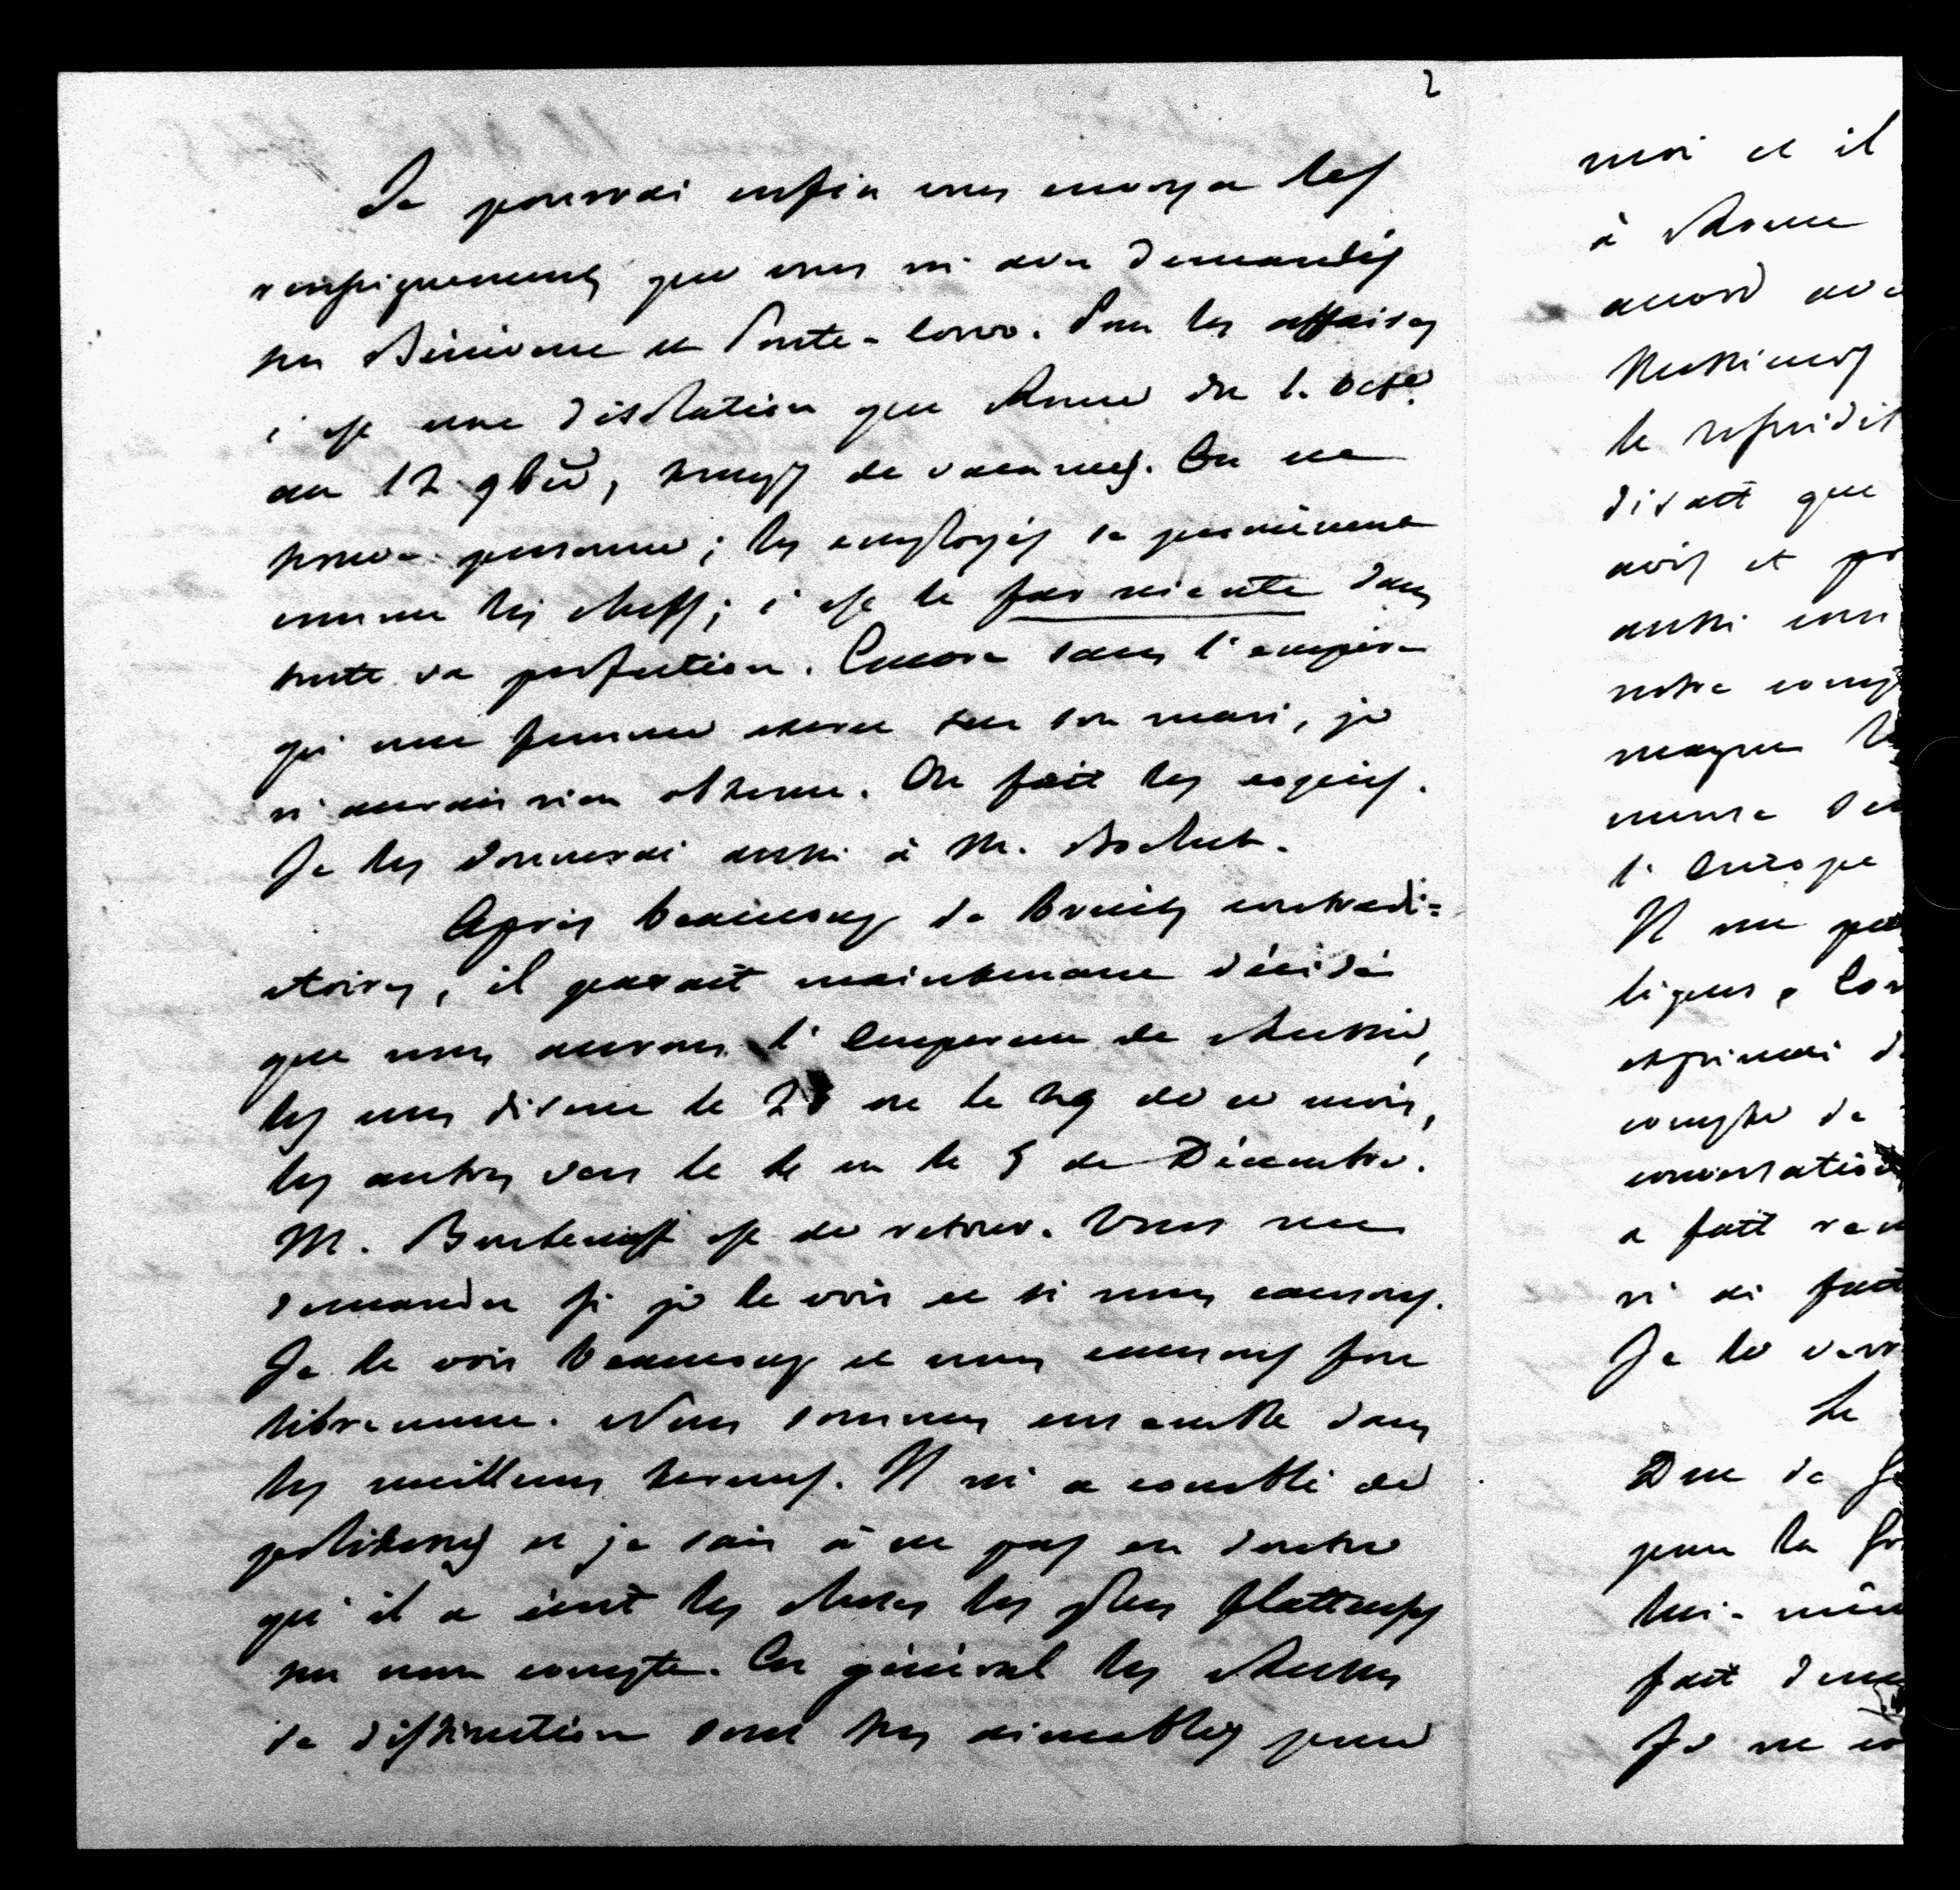 2
Je pourrai enfin vous envoyer les
renseignements que vous m'avez demandés
sur Bénévent et Ponte-Corvo. Pour les affaires
c'est une désolation que Rome du 1. Octe
au 12 9bre, temps de vacances. On ne
trouve personne; les employés se promènent
comme les chefs; c'est le far niente dans
toute sa perfection. Encore sans l'empire
qu'une femme exerce sur son mari, je
n'aurais rien obtenu. On fait les copies.
Je les donnerai aussi à M.
Après beaucoup de bruits contradi=
ctoires, il parait maintenant décidé
que nous aurons l'Empereur de Russie,
les uns disent le 28 ou le 29 de ce mois,
les autres vers le 4 ou le 5 de Décembre.
M. Bouteneff est de retour. Vous me
demandez si je le vois et si nous causons.
Je le vois beaucoup et nous causons fort
librement. Nous sommes ensemble dans
les meilleurs termes. Il m'a comblé de
politesses et je sais à ne pas en douter
qu'il a écrit les choses les plus flatteuses
sur mon compte. En général les Russes
de distinction sont très aimables pour
moi et il
à Rome
accord ave
Messieurs
le
disait que
avis et pr
aussi
notre comp
l'Europe
Il me
exprimai d
compte de
conversation
a fait
n'ai fait
Je le verr
Le
Duc de
pour la
lui-mêm
fait
Je ne co